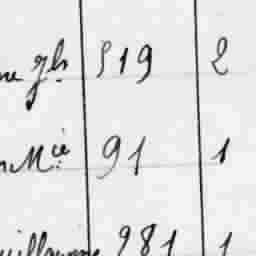 ne Jh 519 2
n Mie 91 1
uillaume 981 1